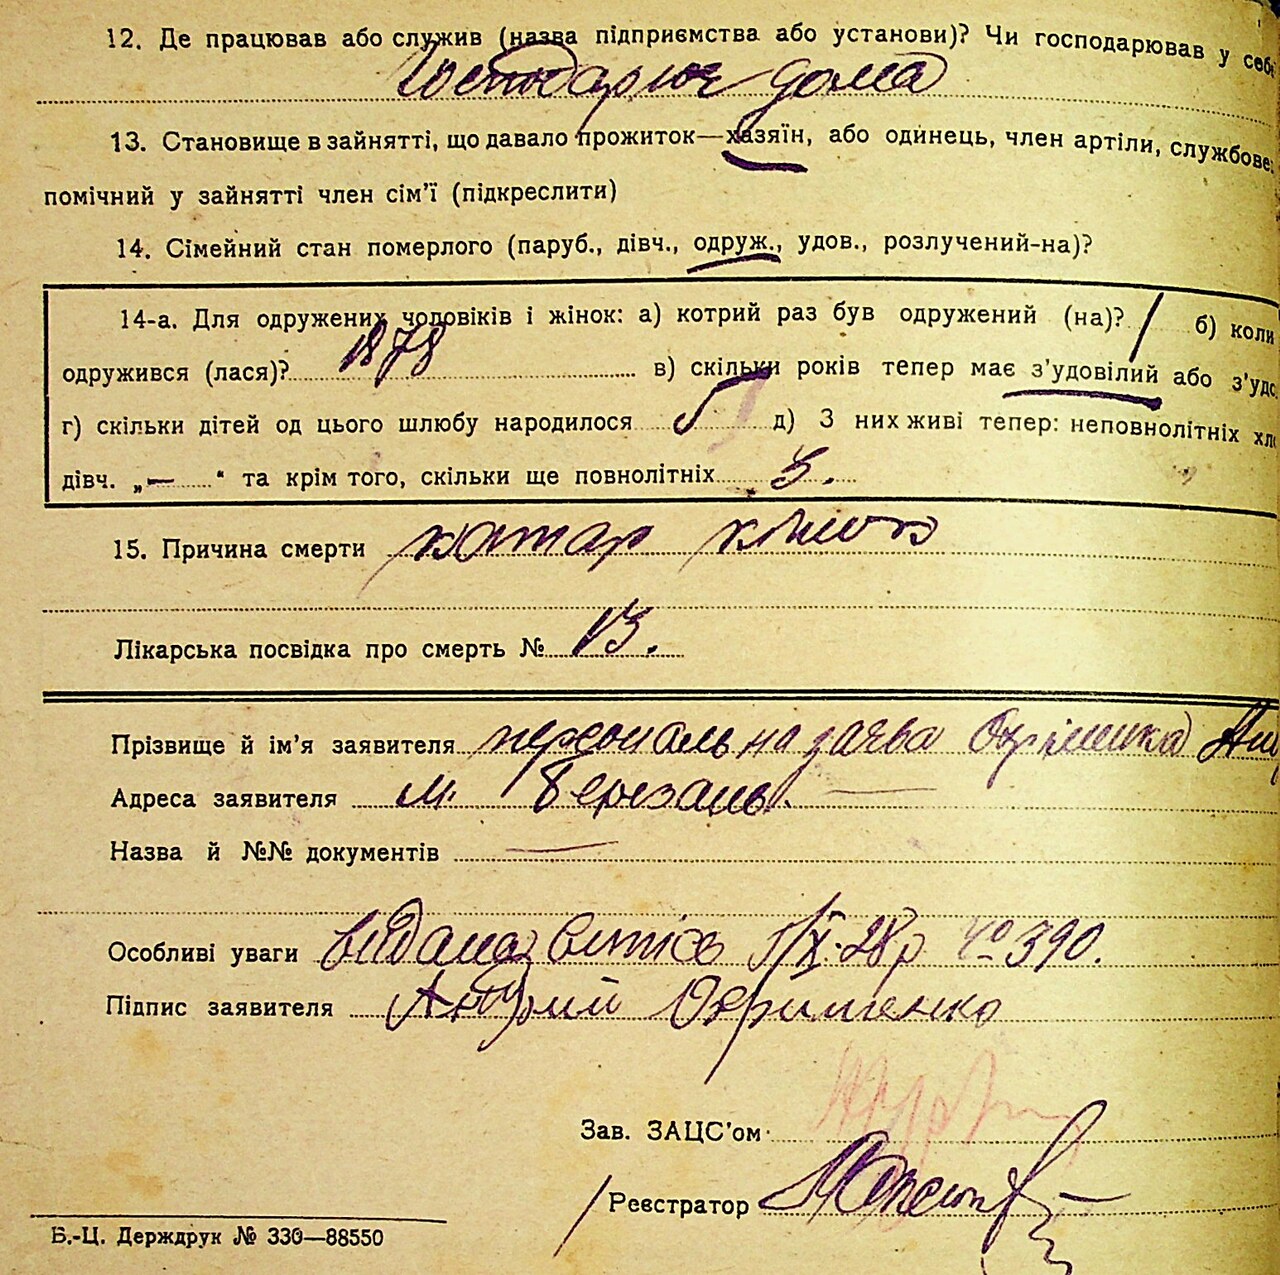 12. Де працював або служив (назва підприємства або установи)? Чи господарював у себе
Господарює дома
13. Становище в зайнятті, що давало прожиток—хазяїн, або одинець, член артіли, службове
помічний у зайнятті член сім'ї (підкреслити)
14. Сімейний стан померлого (паруб., дівч., одруж., удов., розлучений-на)?
14-а. Для одружених чоловіків і жінок: а) котрий раз був одружений (на)? 1 б) коли
одружився (лася)? 1878 в) скільки років тепер має з'удовілий або з'удо
г) скільки дітей од цього шлюбу народилося 5 д) З них живі тепер: неповнолітніх хл
дівч. „—“ та крім того, скільки ще повнолітніх 5.
15. Причина смерти катар кишок
Лікарська посвідка про смерть № 13.
Прізвище й ім'я заявителя персональна заява Охріменка Анд
Адреса заявителя м. Березань. —
Назва й №№ документів —
Особливі уваги видана 5/X-28р № 390.
Підпис заявителя Андрий Охрименко
Зав. ЗАЦС'ом
Реєстратор
Б.-Ц. Держдрук № 330—88550